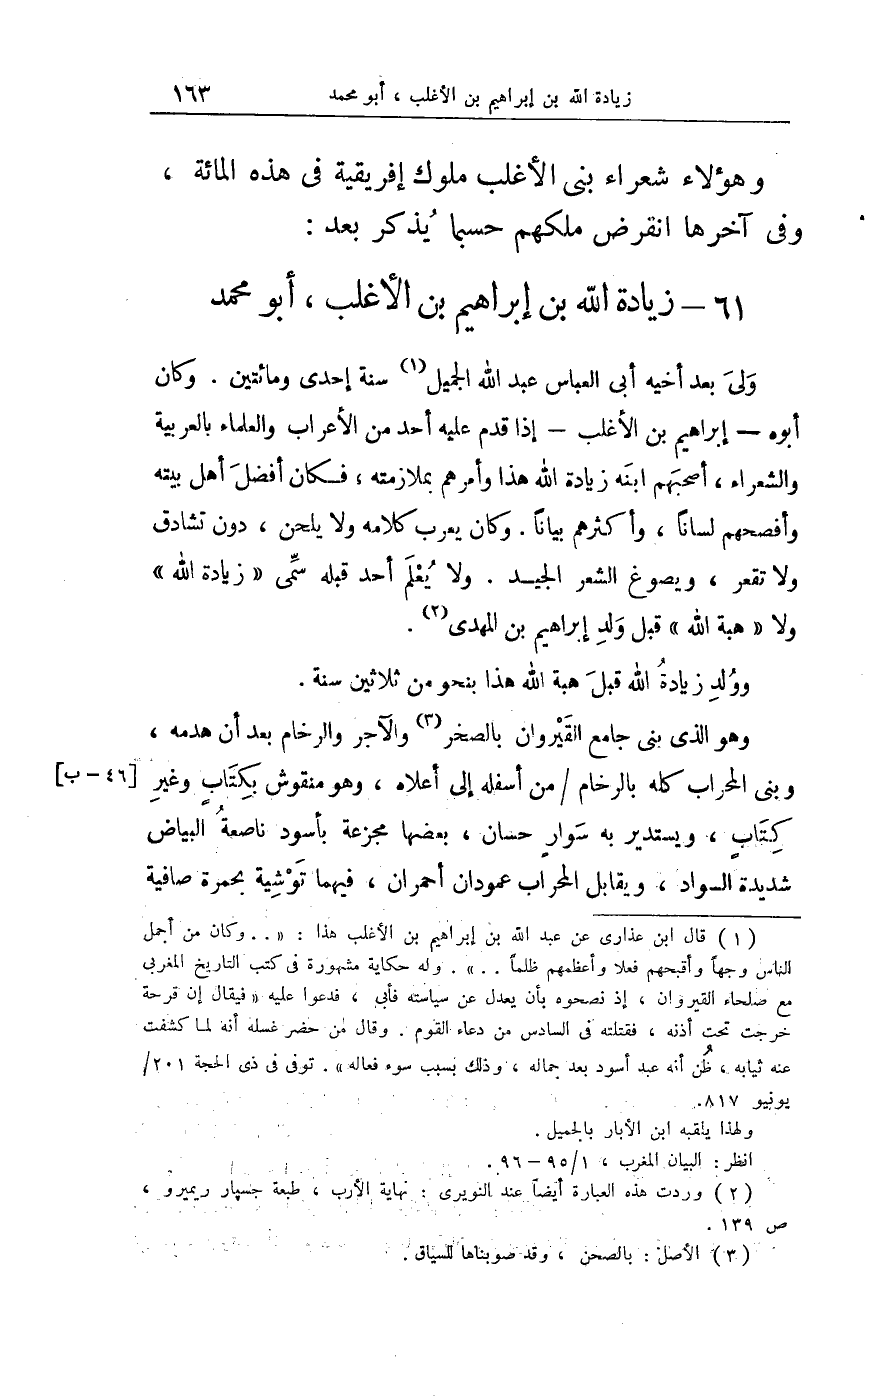 زيادة الله بن إبراهيم بن الأغلب ، أبو محمد ١٦٣
وهؤلاء شعراء بنى الأغلب ملوك إفريقية فى هذه المائة ،
وفى آخرها انقرض ملكهم حسبما يُذكر بعد :
٦١ – زيادة الله بن إبراهيم بن الأغلب ، أبو محمد
وَلىَ بعد أخيه أبى العباس عبد الله الجميل (١) سنة إحدى ومائتين . وكان
أبوه – إبراهيم بن الأغلب – إذا قدم عليه أحد من الأعراب والعلماء بالعربية
والشعراء ، أصحبَهم ابنَه زيادة الله هذا وأمرهم بملازمته ، فكان أفضلَ أهل بيته
وأفصحهم لساناً ، وأكثرهم بياناً . وكان يعرب كلامه ولا يلحن ، دون تشادق
ولا تقعر ، ويصوغ الشعر الجيد . ولا يُعْلَم أحد قبله سُمِّى « زيادة الله »
ولا « هبة الله » قبل وَلدِ إبراهيم بن المهدى (٢) .
ووُلدِ زيادةُ الله قبلَ هبة الله هذا بنحو من ثلاثين سنة .
وهو الذى بنى جامع القَيْروان بالصخر (٣) والآجر والرخام بعد أن هدمه ،
وبنى المحراب كله بالرخام / من أسفله إلى أعلاه ، وهو منقوش بكِتَابٍ وغيرِ [٤٦ – ب]
كِتَابٍ ، ويستدير به سَوارٍ حسان ، بعضها مجزعة بأسود ناصعةُ البياض
شديدة السواد ، ويقابل المحراب عمودان أحمران ، فيهما تَوْشِية بحمرة صافية
(١) قال ابن عذارى عن عبد الله بن إبراهيم بن الأغلب هذا : « . . وكان من أجمل
الناس وجهاً وأقبحهم فعلا وأعظمهم ظلماً . . » . وله حكاية مشهورة فى كتب التاريخ المغربى
مع صلحاء القيروان ، إذ نصحوه بأن يعدل عن سياسته فأبى ، فدعوا عليه « فيقال إن قرحة
خرجت تحت أذنه ، فقتلته فى السادس من دعاء القوم . وقال مَن حضر غسله أنه لما كشفت
عنه ثيابه ، ظُن أنه عبد أسود بعد جماله ، وذلك بسبب سوء فعاله » . توفى فى ذى الحجة ٢٠١/
يونيو ٨١٧.
ولهذا يلقبه ابن الأبار بالجميل .
انظر : البيان المغرب ، ١/ ٩٥ – ٩٦ .
(٢) وردت هذه العبارة أيضاً عند النويرى : نهاية الأرب ، طبعة جسپار ريميرو ،
ص ١٣٩ .
(٣) الأصل : بالصحن ، وقد صوبناها للسياق .